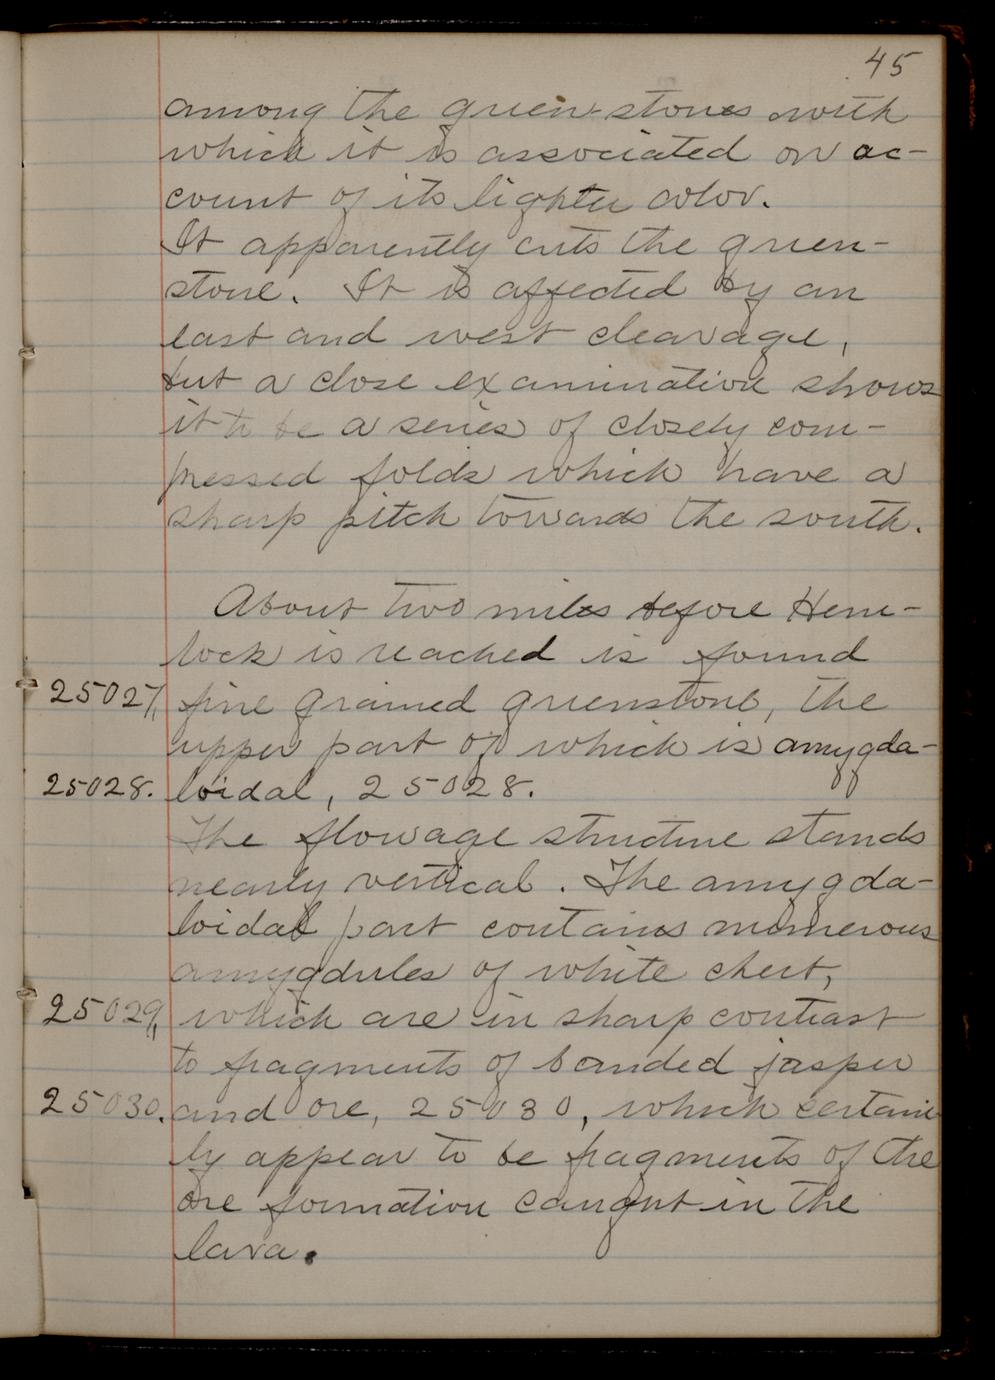 45
among the green-stones with
which it is associated on ac-
count of its lighter color.
It apparently cuts the green-
stone. It is affected by an
east and west cleavage,
but a close examination shows
it to be a series of closely com-
pressed folds which have a
sharp pitch towards the south.
About two miles before Hem-
lock is reached is found
25027, fine grained greenstone, the
upper part of which is amygda-
25028. loidal, 25028.
The flowage structure stands
nearly vertical. The amygda-
loidal part contains numerous
amygdules of white chert,
25029, which are in sharp contrast
to fragments of banded jasper
25030. and ore, 25030, which certain-
ly appear to be fragments of the
ore formation caught in the
lava.